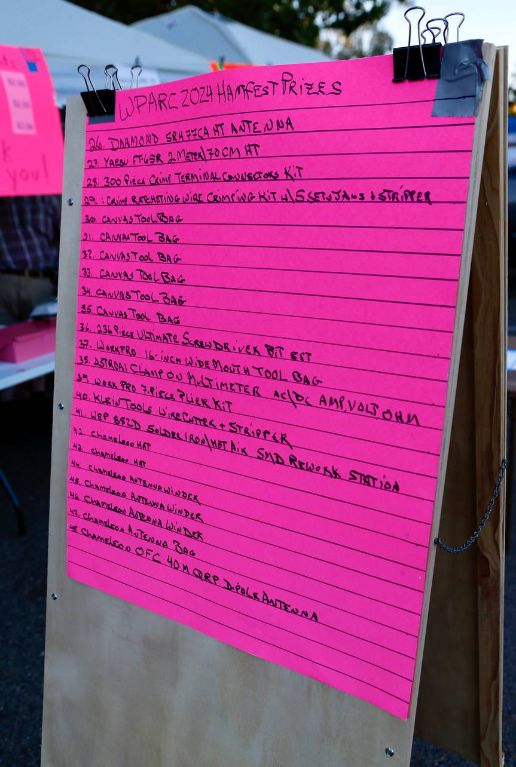 WPARC 2024 HAMFEST PRIZES
26. DIAMOND SRH77CA HT ANTENNA
27. YAESU FT-65R 2 METER/70CM HT
28. 300 PIECE CRIMP TERMINAL CONNECTORS KIT
29. CRIMP RATCHETING WIRE CRIMPING KIT W/5 SETS JAWS + STRIPPER
30. CANVAS TOOL BAG
31. CANVAS TOOL BAG
32. CANVAS TOOL BAG
33. CANVAS TOOL BAG
34. CANVAS TOOL BAG
35. CANVAS TOOL BAG
36. PIECE ULTIMATE SCREWDRIVER BIT SET
37. WORKPRO 16-INCH WIDE MOUTH TOOL BAG
38. ASTROAI CLAMP ON MULTIMETER AC/DC AMP, VOLT OHM
39. WORKPRO 7-PIECE PLIER KIT
40. KLEIN TOOLS WIRE CUTTER + STRIPPER
41. WEP 882D SOLDER IRON/HOT AIR SMD REWORK STATION
42. CHAMELEON HAT
43. CHAMELEON HAT
44. CHAMELEON ANTENNA WINDER
45. CHAMELEON ANTENNA WINDER
46. CHAMELEON ANTENNA WINDER
47. CHAMELEON ANTENNA BAG
48. CHAMELEON OFC 40M QRP DIPOLE ANTENNA
you!